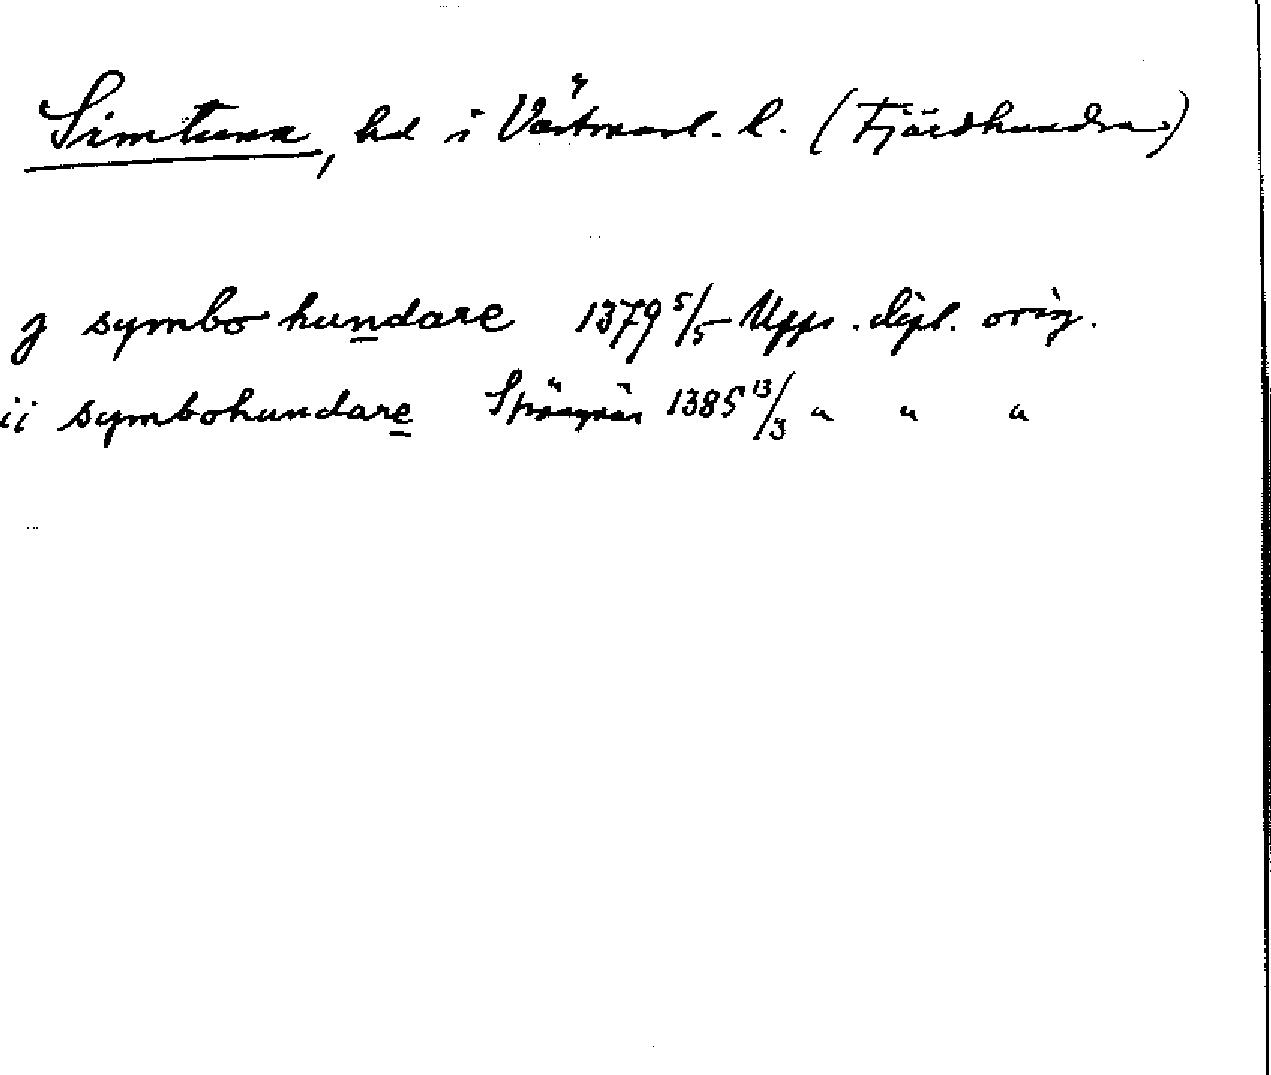 Simtuna, hd i Västmanl. l. (Fjärdhundra)
j symbo hundare 1379 5/5 Upps. dipl. orig.
ii symbohundare Strängnäs 1385 13/3 " " "